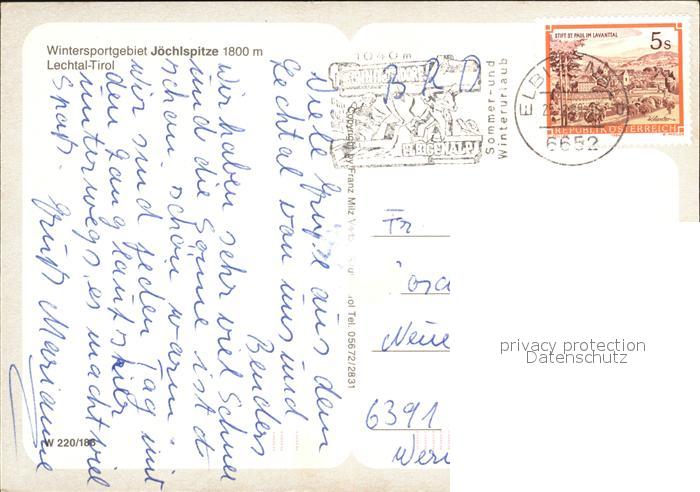 Wintersportgebiet Jöchlspitze 1800 m
Lechtal-Tirol
Viele Grüße aus dem
Lechtal von uns und
Benders
Wir haben sehr viel Schnee
und die Sonne ist d
schon schön warm.
Wir sind jeden Tag mit
den Langlaufskiern
unterwegs, es macht viel
Spaß. Gruß Marianne
W 220/186
Copyright by Franz Milz Tel. 05672/2831
1040m
ELBIGENALP
Sommer- und
Winterurlaub
BRD
ELBIGENALP
6652
STIFT ST. PAUL IM LAVANTTAL
5s
REPUBLIK ÖSTERREICH
Fr.
Neue
6391
privacy protection
Datenschutz